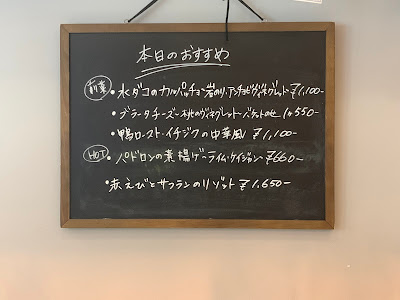 本日のおすすめ
前菜 ・水ダコのカルパッチョ~岩のり・アンチョビヴィネグレット~ ¥1,100-
・ブラータチーズ~桃のヴィネグレット・バケットのせ 1ヶ550-
・鴨ロースト・イチジクの中華風 ¥1,100-
HOT ・パドロンの素揚げ~ライム・ケイジャン~ ¥660-
・赤えびとサフランのリゾット ¥1,650-